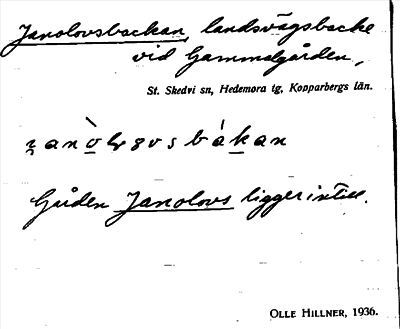 Janolovsbackan, landsvägsbacke
vid Gammalgården,
St. Skedvi sn, Hedemora tg, Kopparbergs län.
Gården Janolovs ligger intill.
OLLE HILLNER, 1936.